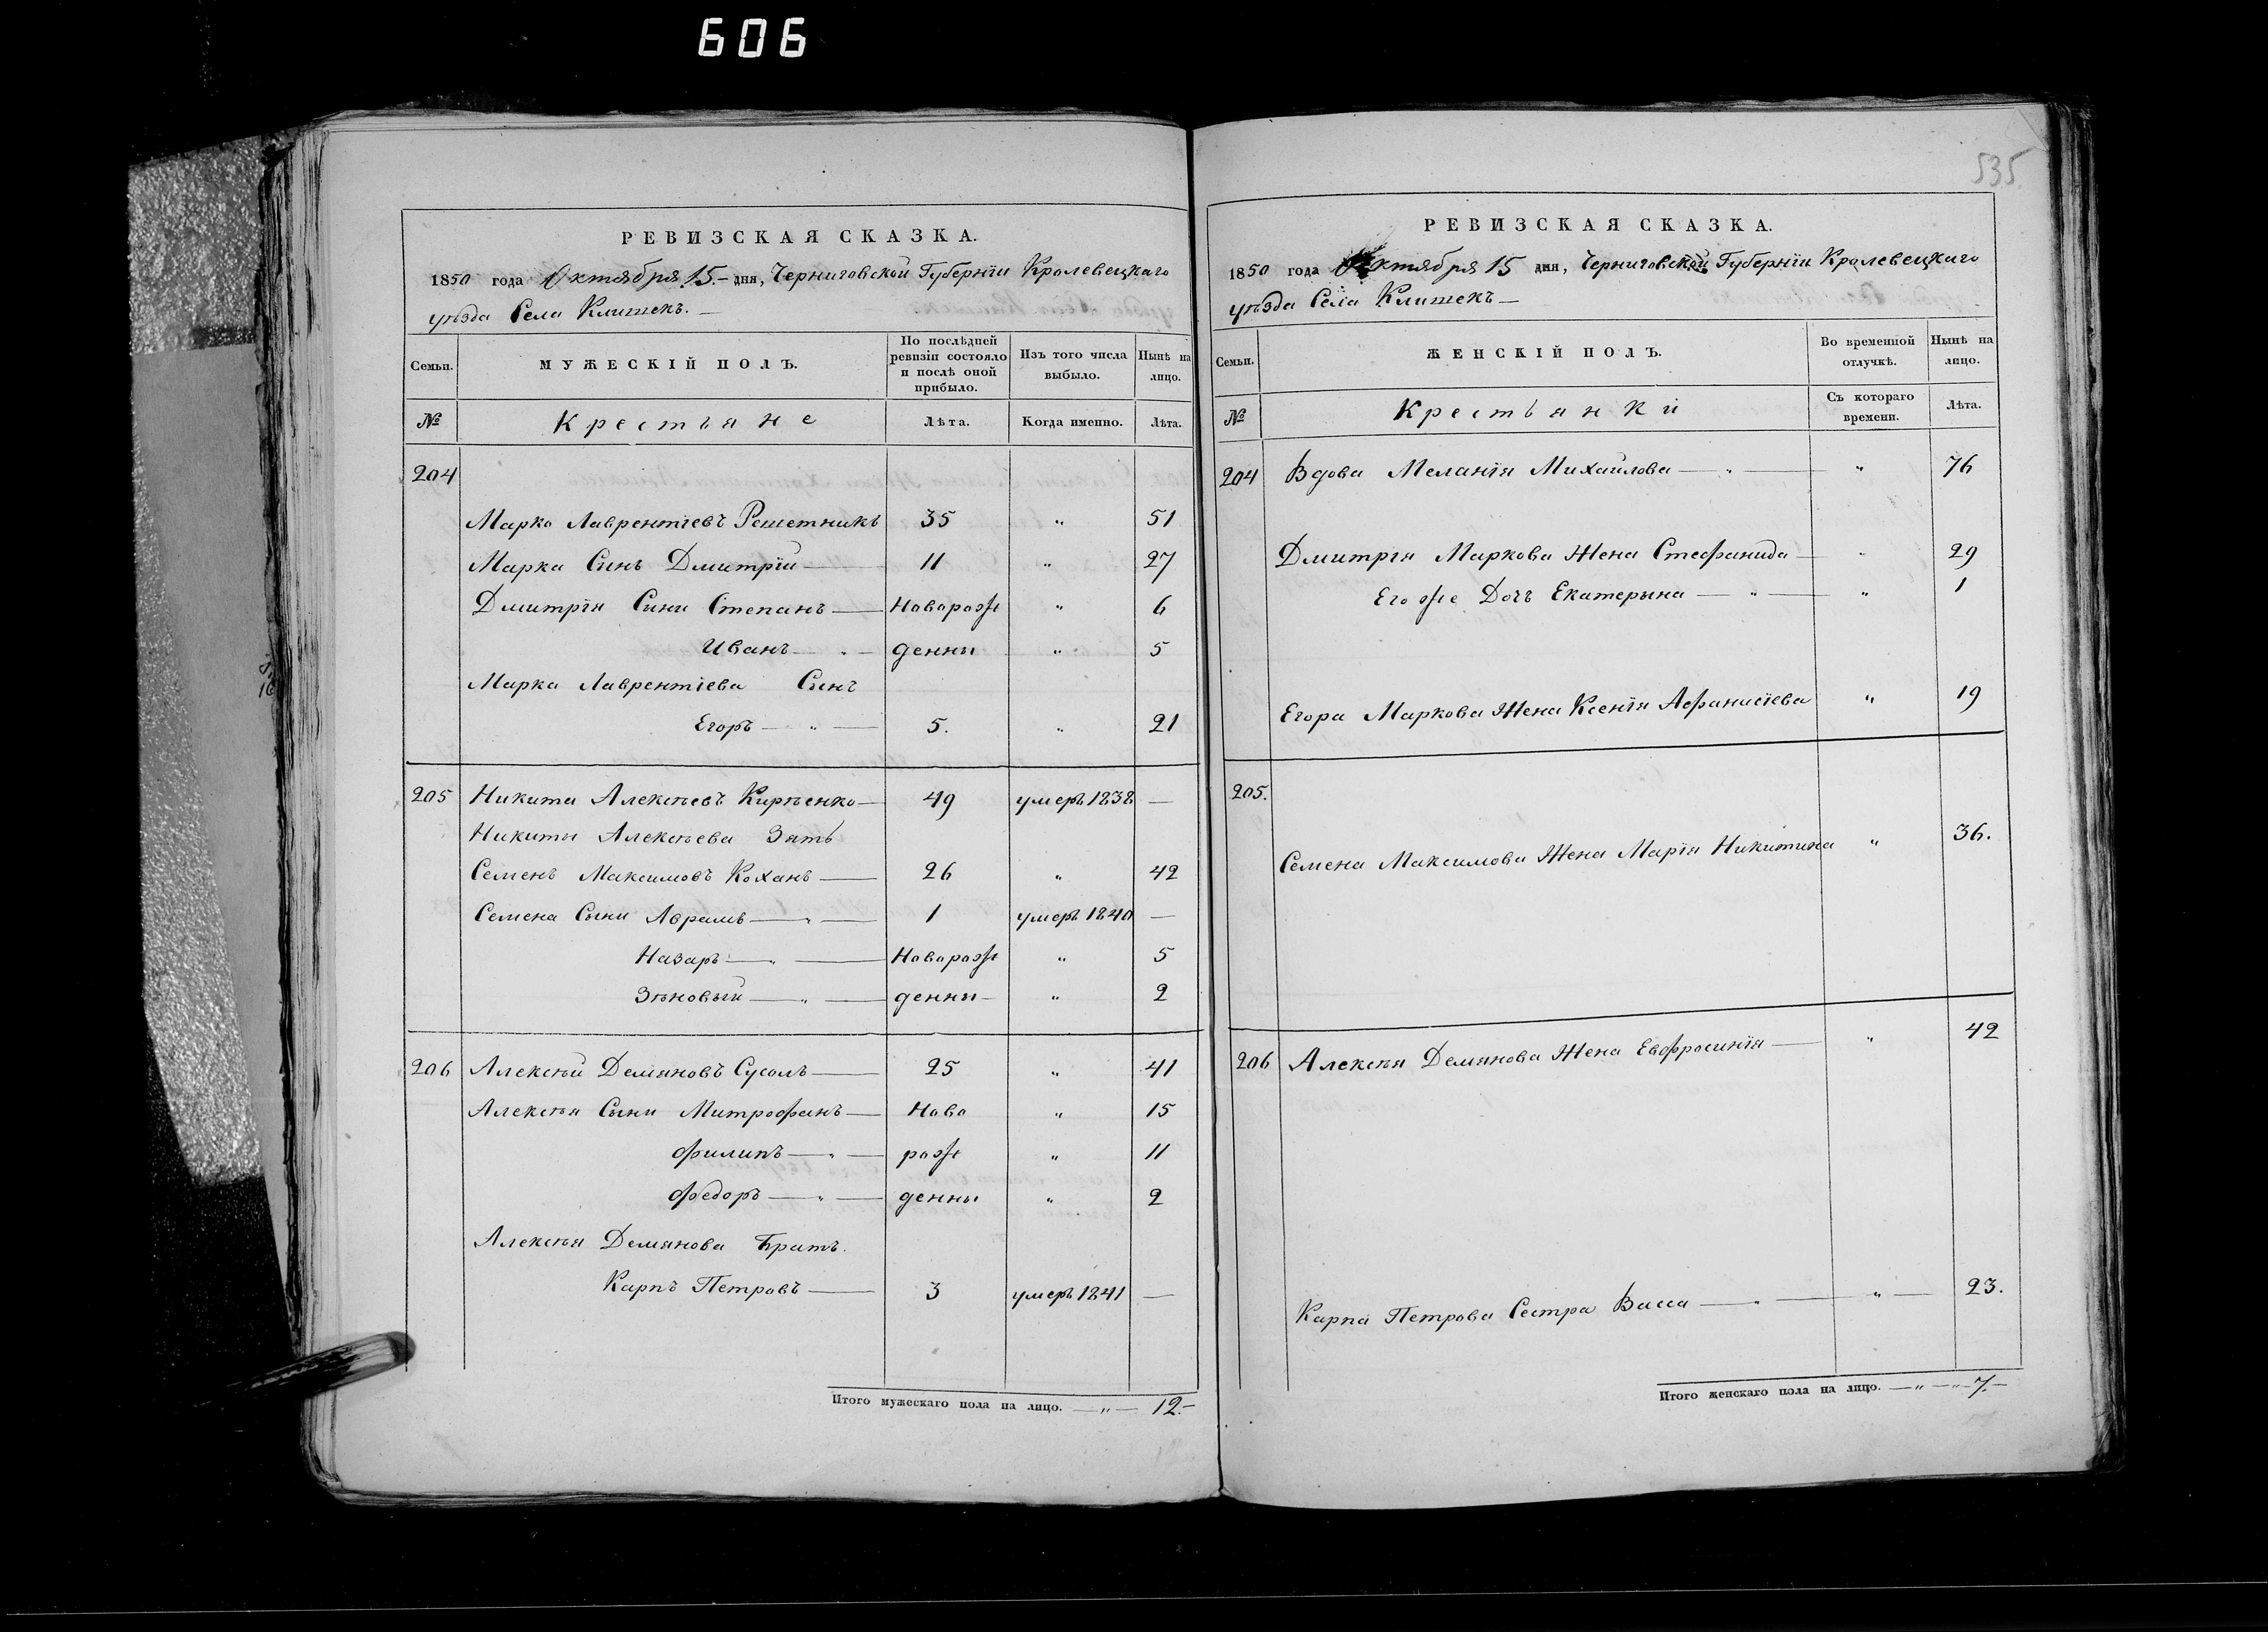 606
РЕВИЗСКАЯ СКАЗКА.
1850 года Октября 15.– дня, Черниговской Губернiи Кролевецкаго
уѣзда Села Клишекъ.
Семьи. МУЖЕСКІЙ ПОЛЪ. По послѣдней ревизіи состояло и послѣ оной прибыло. Изъ того числа выбыло. Нынѣ на лицо.
№ Крестьяне Лѣта. Когда именно. Лѣта.
204
Марко Лаврентiевъ Решетникъ 35 " 51
Марка Сынъ Дмитрiй 11 " 27
Дмитрiя Сыни Степанъ Новорож 6
Иванъ денны " 5
Марка Лаврентiева Сынъ
Егоръ " 5. " 21
205 Никита Алексѣевъ Кирѣенко 49 умеръ 1838 —
Никиты Алексѣева Зять
Семенъ Максимовъ Коханъ 26 " 42
Семена Сыни Аврамъ " 1 умеръ 1840 —
Назаръ " Новорож " 5
Зѣновый " денны " 2
206 Алексѣй Демяновъ Сусолъ 25 " 41
Алексѣя Сыни Митрофанъ Ново " 15
Филипъ " рож " 11
Федоръ " денны " 2
Алексѣя Демянова Братъ.
Карпъ Петровъ 3 умеръ 1841 —
Итого мужескаго пола на лицо. — " — 12.–
535
РЕВИЗСКАЯ СКАЗКА.
1850 года Октября 15 дня, Черниговской Губернiи Кролевецкаго
уѣзда Села Клишекъ
Семьи. ЖЕНСКІЙ ПОЛЪ. Во временной отлучкѣ. Нынѣ на лицо.
№ Крестьянки Съ котораго времени. Лѣта.
204 Вдова Меланiя Михайлова " " 76
Дмитрiя Маркова Жена Стефанида " 29
Его же Дочъ Екатерына " " 1
Егора Маркова Жена Ксенiя Афанасiева " 19
205.
Семена Максимова Жена Марiя Никитина " 36.
206 Алексѣя Демянова Жена Евфросинiя " 42
Карпа Петрова Сестра Васса " " 23.
Итого женскаго пола на лицо. — " — " — 7.–